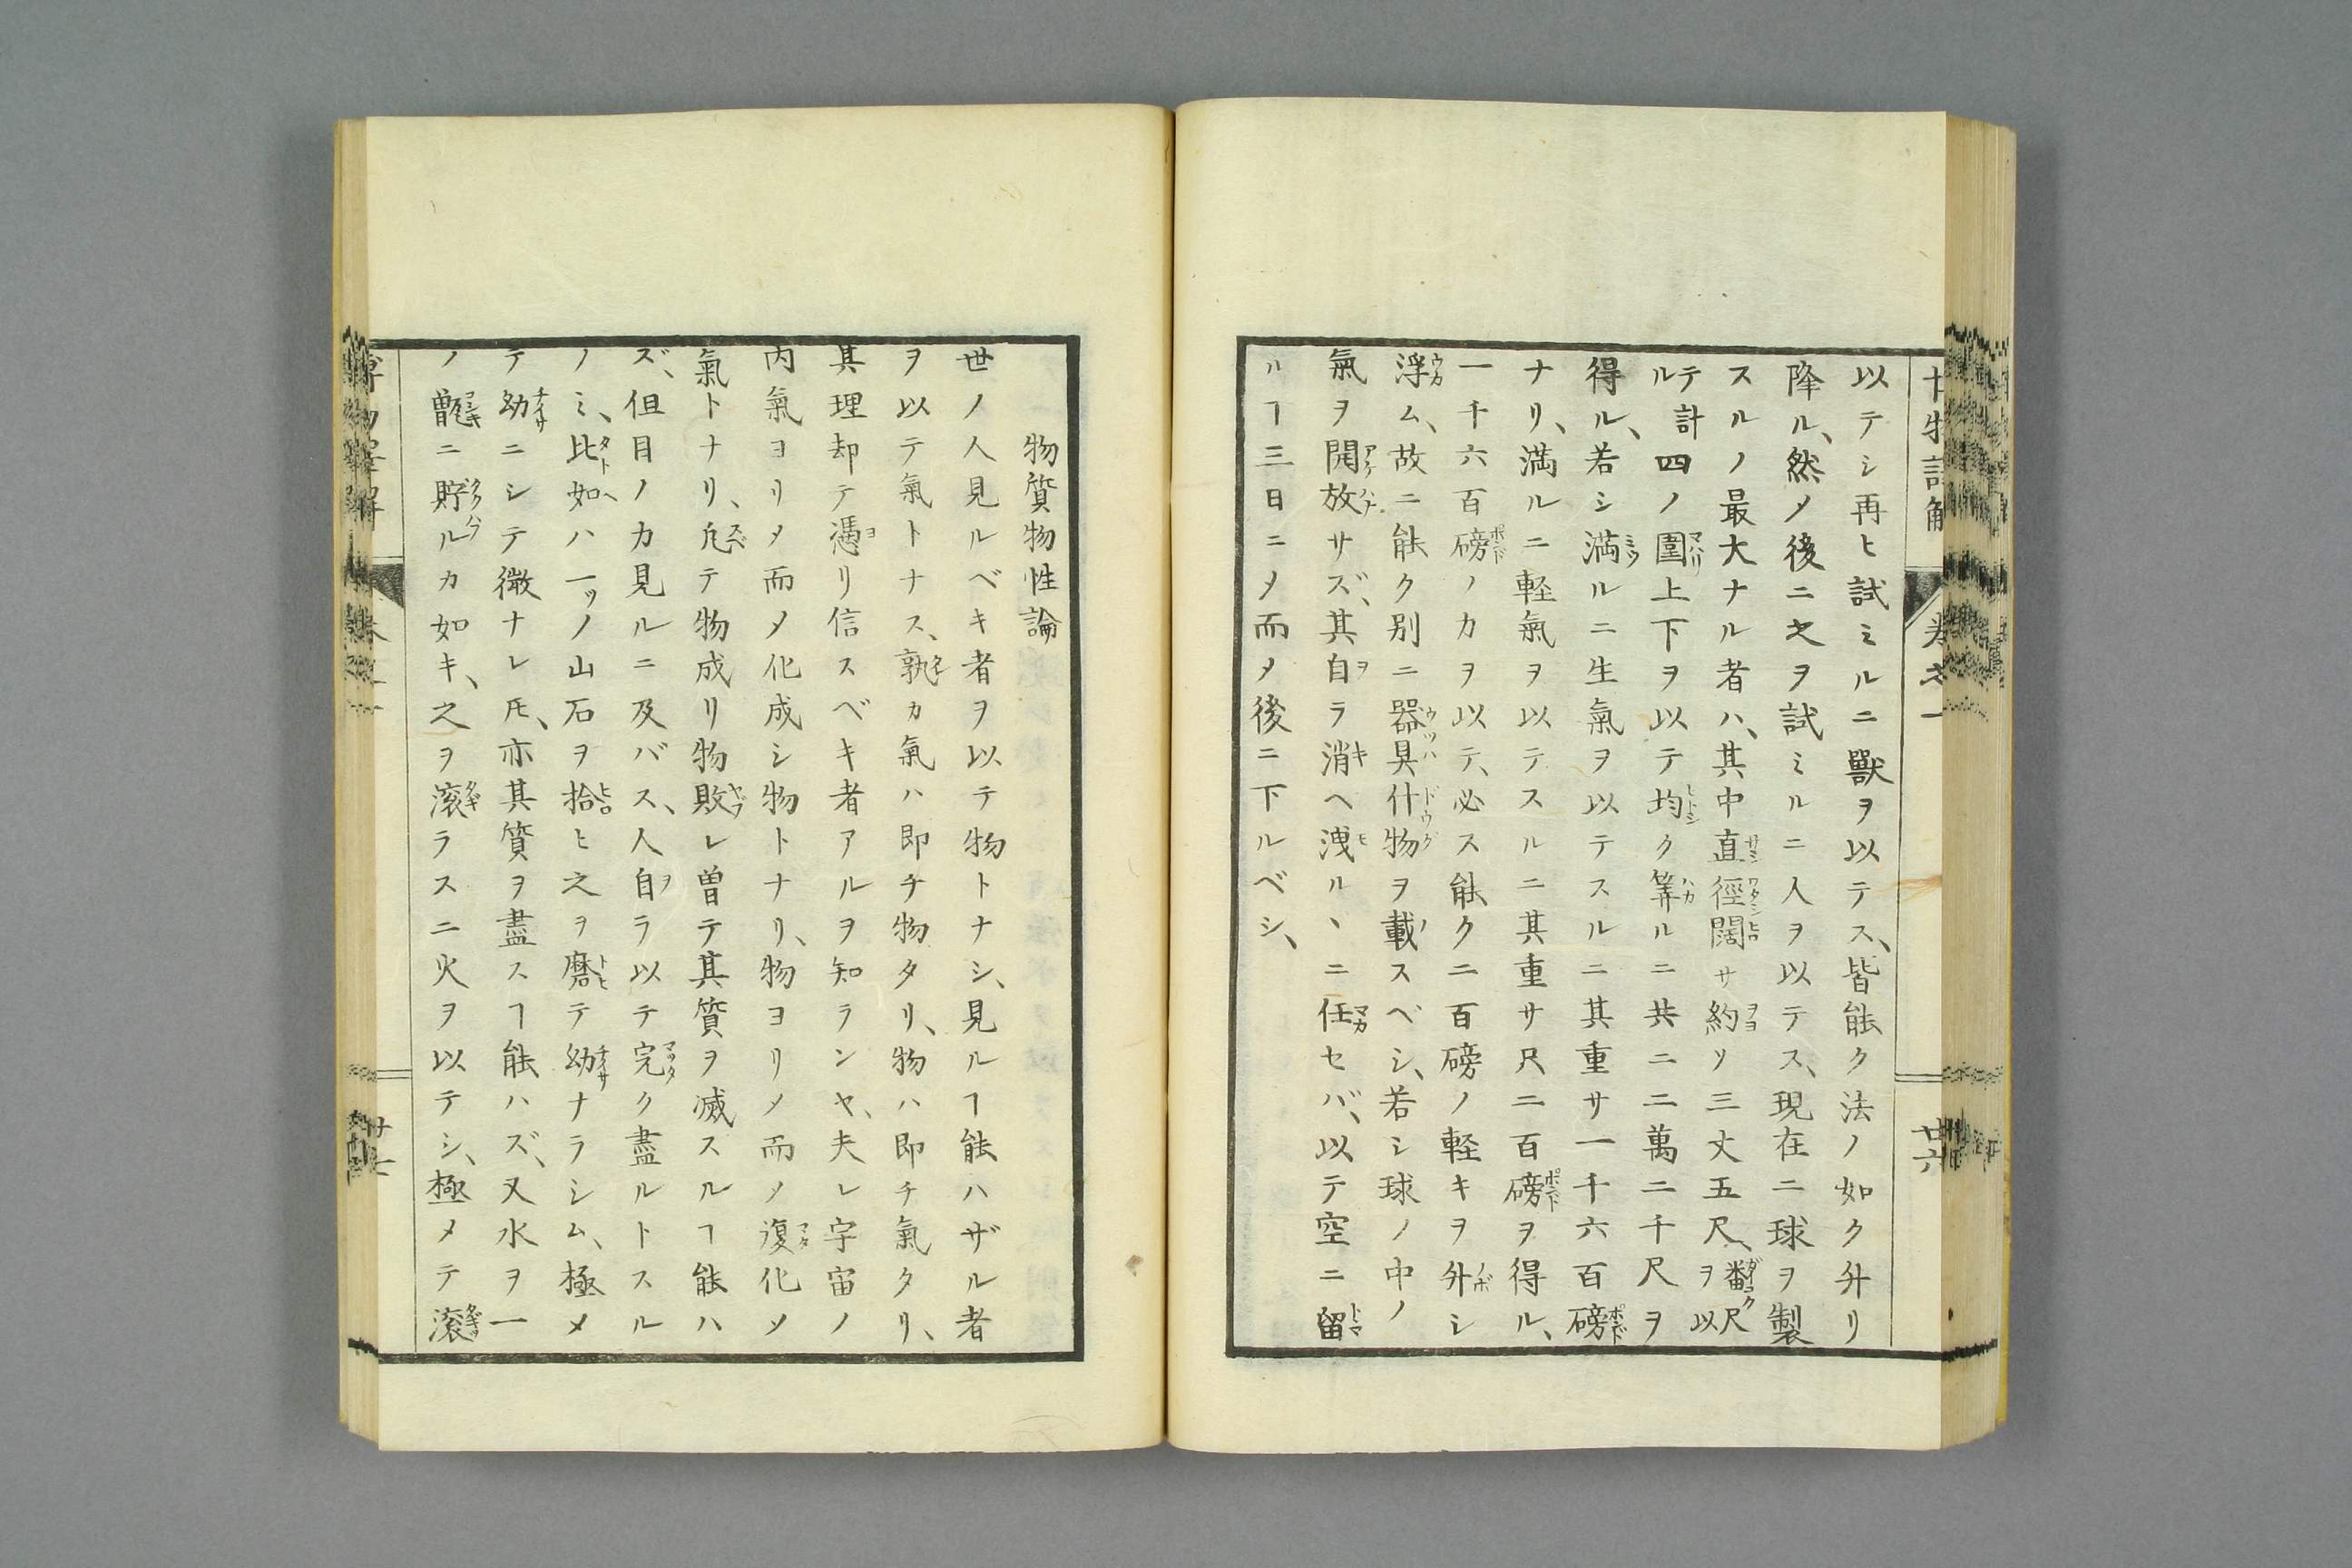 以テシ再ヒ試ミルニ獸ヲ以テス、皆能ク法ノ如ク升リ
降ル、然メ後ニ之ヲ試ミルニ人ヲ以テス、現在ニ球ヲ製
スルノ最大ナル者ハ、其中直徑闊サ約ソ三丈五尺、ヲ以
テ計ル四ノ圍上下ヲ以テ均ク筭ルニ共ニ二萬二千尺ヲ
得ル、若シ満ルニ生氣ヲ以テスルニ其重サ一千六百磅
ナリ、満ルニ軽氣ヲ以テスルニ其重サ尺二百磅ヲ得ル、
一千六百磅ノカヲ以テ、必ス能ク二百磅ノ軽キヲ升シ
浮ム、故ニ能ク别ニ器具什物ヲ載スベシ、若シ球ノ中ノ
氣ヲ開放サズ、其自ラ消ヘ洩ルヽニ任セバ、以テ空ニ留
ルヿ三日ニメ而メ後ニ下ルベシ、
卷之一
廿六
物質物性論
世ノ人見ルベキ者ヲ以テ物トナシ、見ルヿ能ハザル者
ヲ以テ氣トナス、孰カ氣ハ即チ物タリ、物ハ即チ氣タリ、
其理却テ憑リ信スベキ者アルヲ知ランヤ、夫レ宇宙ノ
内氣ヨリメ而メ化成シ物トナリ、物ヨリメ而メ復化ソ
氣トナリ、凢テ物成リ物敗レ曽テ其質ヲ滅スルヿ能ハ
ズ、但目ノカ見ルニ及バス、人自ラ以テ完ク盡ルトスル
ノミ、比如ハ一ッノ山石ヲ拾ヒ之ヲ磨テ幼ナラシム、極メ
テ幼ニシテ微ナレ𪜈、亦其質ヲ盡スヿ能ハズ、又水ヲ一
ノ甑ニ貯ルカ如キ、之ヲ滚ラスニ火ヲ以テシ、極メテ滚